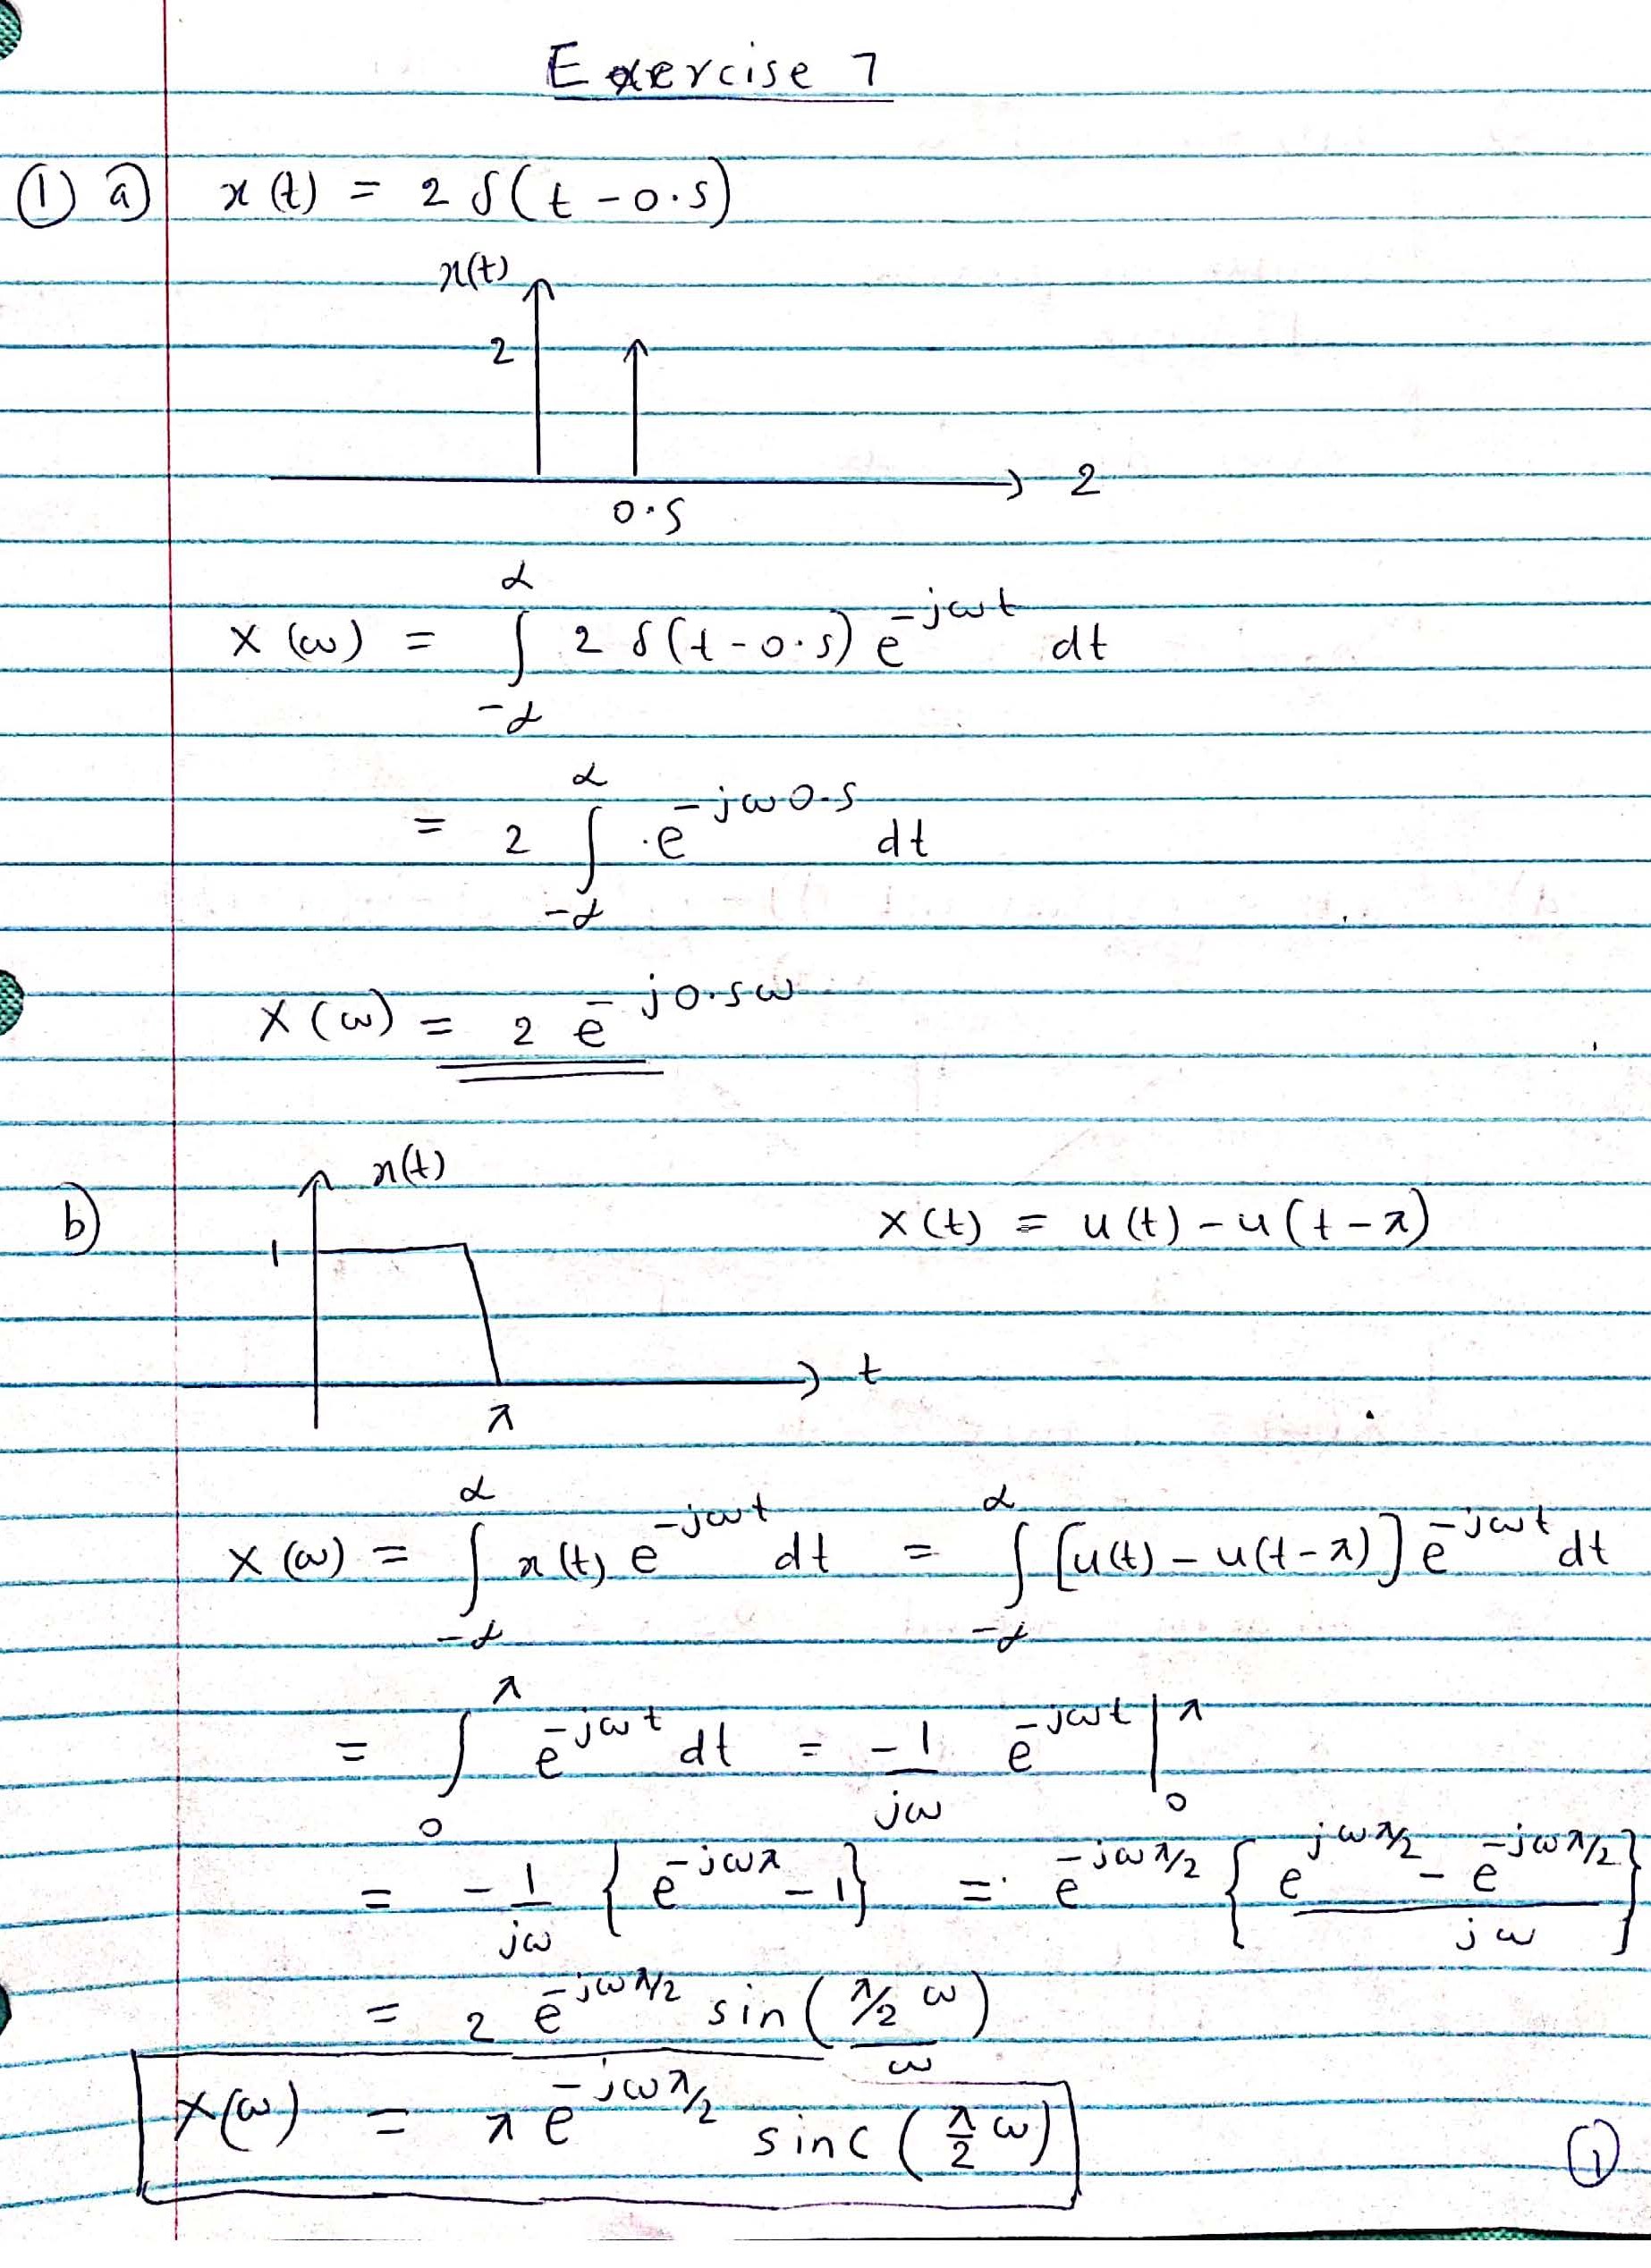 Exercise 7
① a) x(t) = 2 δ(t - 0.5)
x(t)
2
2
0.5
X(ω) = ∫_{-∞}^{∞} 2 δ(t-0.5) e^{-jωt} dt
= 2 ∫_{-∞}^{∞} · e^{-jω0.5} dt
X(ω) = 2 e^{-j0.5ω}
b) x(t) x(t) = u(t) - u(t-π)
1
t
π
X(ω) = ∫_{-∞}^{∞} x(t) e^{-jωt} dt = ∫_{-∞}^{∞} [u(t) - u(t-π)] e^{-jωt} dt
= ∫_{0}^{π} e^{-jωt} dt = -1/jω e^{-jωt} |_{0}^{π}
= -1/jω { e^{-jωπ} - 1 } = e^{-jωπ/2} { (e^{jωπ/2} - e^{-jωπ/2})/jω }
= 2 e^{-jωπ/2} sin(π/2 ω)/ω
X(ω) = π e^{-jωπ/2} sinc(π/2 ω)
①